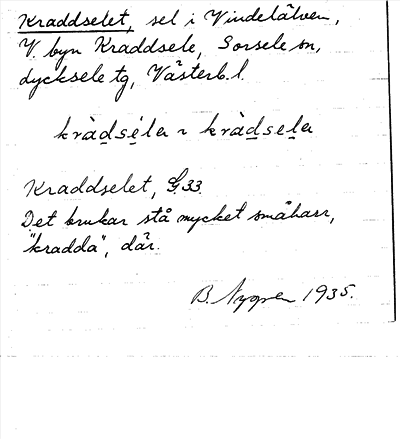 Kraddselet, sel i Vindelälven,
V. byn Kraddsele, Sorsele sn,
Lycksele tg, Västerb. l.
kràdséla ~ kràdsela
Kraddselet, G 33.
Det brukar stå mycket småharr,
"kradda", där.
B. Nygren 1935.